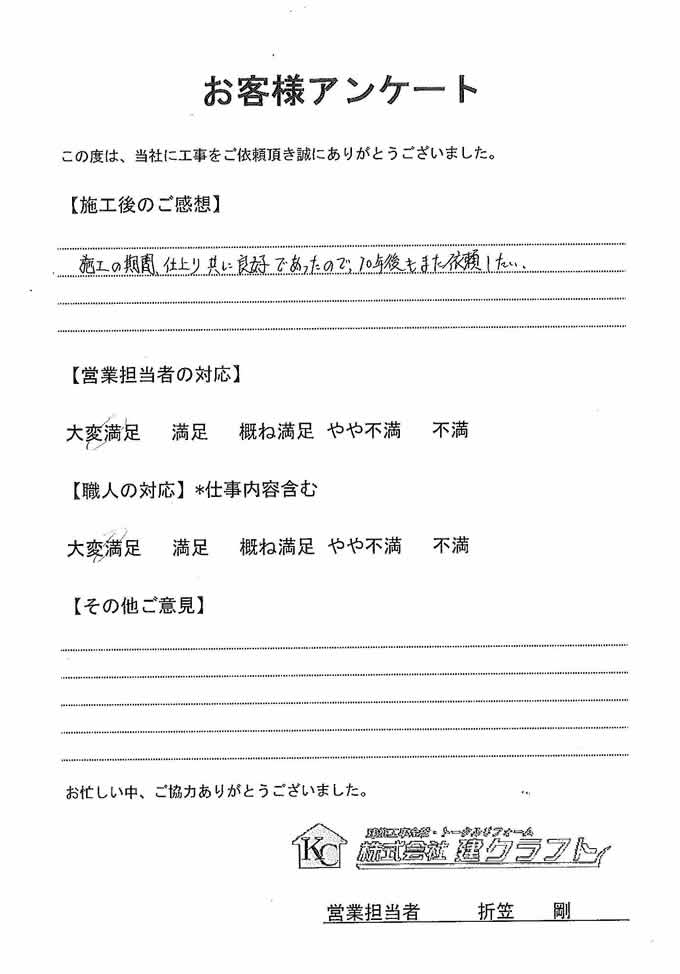 お客様アンケート
この度は、当社に工事をご依頼頂き誠にありがとうございました。
【施工後のご感想】
施工の期間、仕上り共に良好であったので、10年後もまた依頼したい。
【営業担当者の対応】
大変満足 満足 概ね満足 やや不満 不満
【職人の対応】*仕事内容含む
大変満足 満足 概ね満足 やや不満 不満
【その他ご意見】
お忙しい中、ご協力ありがとうございました。
建築工事全般・トータルリフォーム
KC 株式会社 建クラフト
営業担当者 折笠 剛